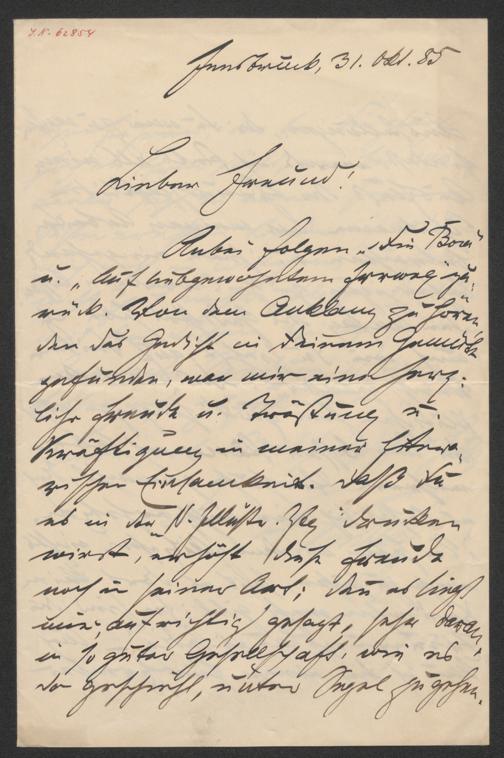 J.N. 62858
Innsbruck, 31. Okt. 85
Lieber Freund!
Anbei folgen „Die
u. „Auf ungewohntem Irrweg" zu-
rück. Von dem Anklang zu hören,
den das Gedicht in Deinem Gemüth
gefunden, war mir eine herz-
liche Freude u. Tröstung u.
Kräftigung in meiner littera-
rischen Einsamkeit. Daß Du
es in der „N. Illustr. Ztg" drucken
wirst, erhöht diese Freude
noch in seiner Art; denn es liegt
mir, aufrichtig gesagt, sehr daran,
in so guter Gesellschaft, wie es
da geschieht, unter Segel zu gehen.